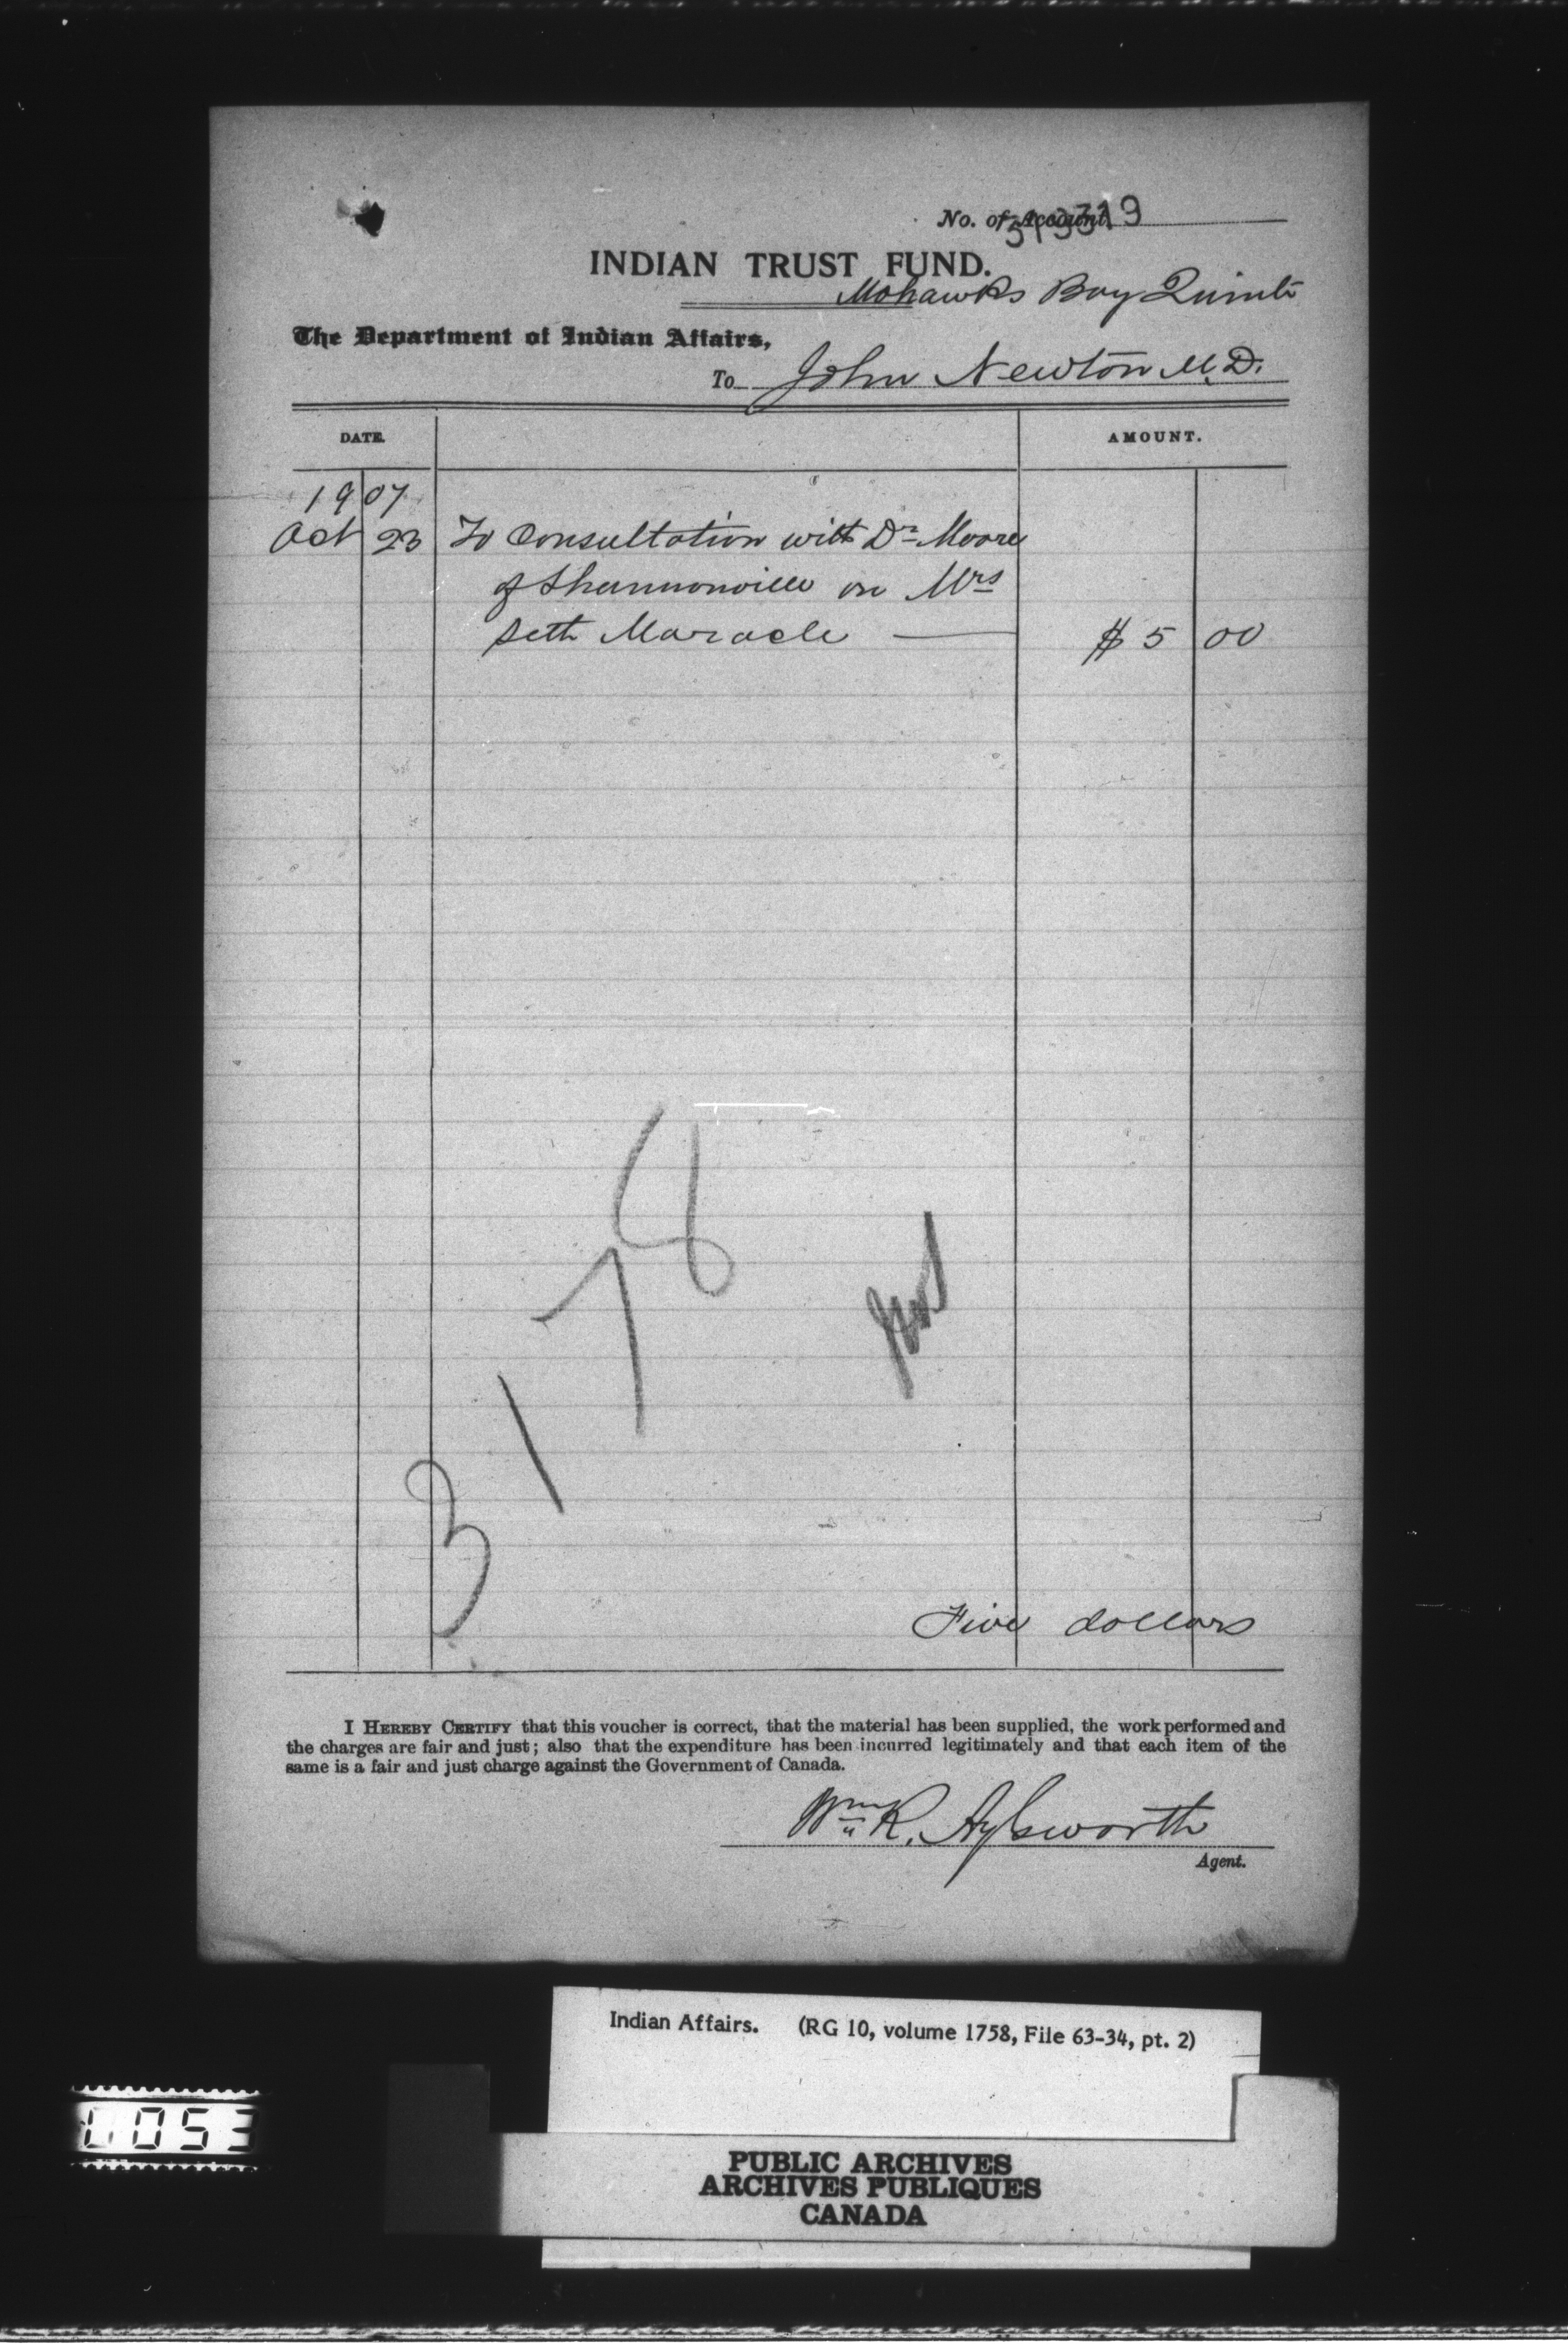 No. of Account
INDIAN TRUST FUND.
Mohawks Bay Quinte
The Department of Indian Affairs,
To John Newton M.D.
DATE. AMOUNT.
1907
Oct 23 To Consultation with Dr Moore
of Shannonville on Mrs
Seth Maracle — $ 5 00
3178
Five dollars
I HEREBY CERTIFY that this voucher is correct, that the material has been supplied, the work performed and
the charges are fair and just; also that the expenditure has been incurred legitimately and that each item of the
same is a fair and just charge against the Government of Canada.
Wm R. Aylsworth
Agent.
Indian Affairs. (RG 10, volume 1758, File 63-34, pt. 2)
0053
PUBLIC ARCHIVES
ARCHIVES PUBLIQUES
CANADA